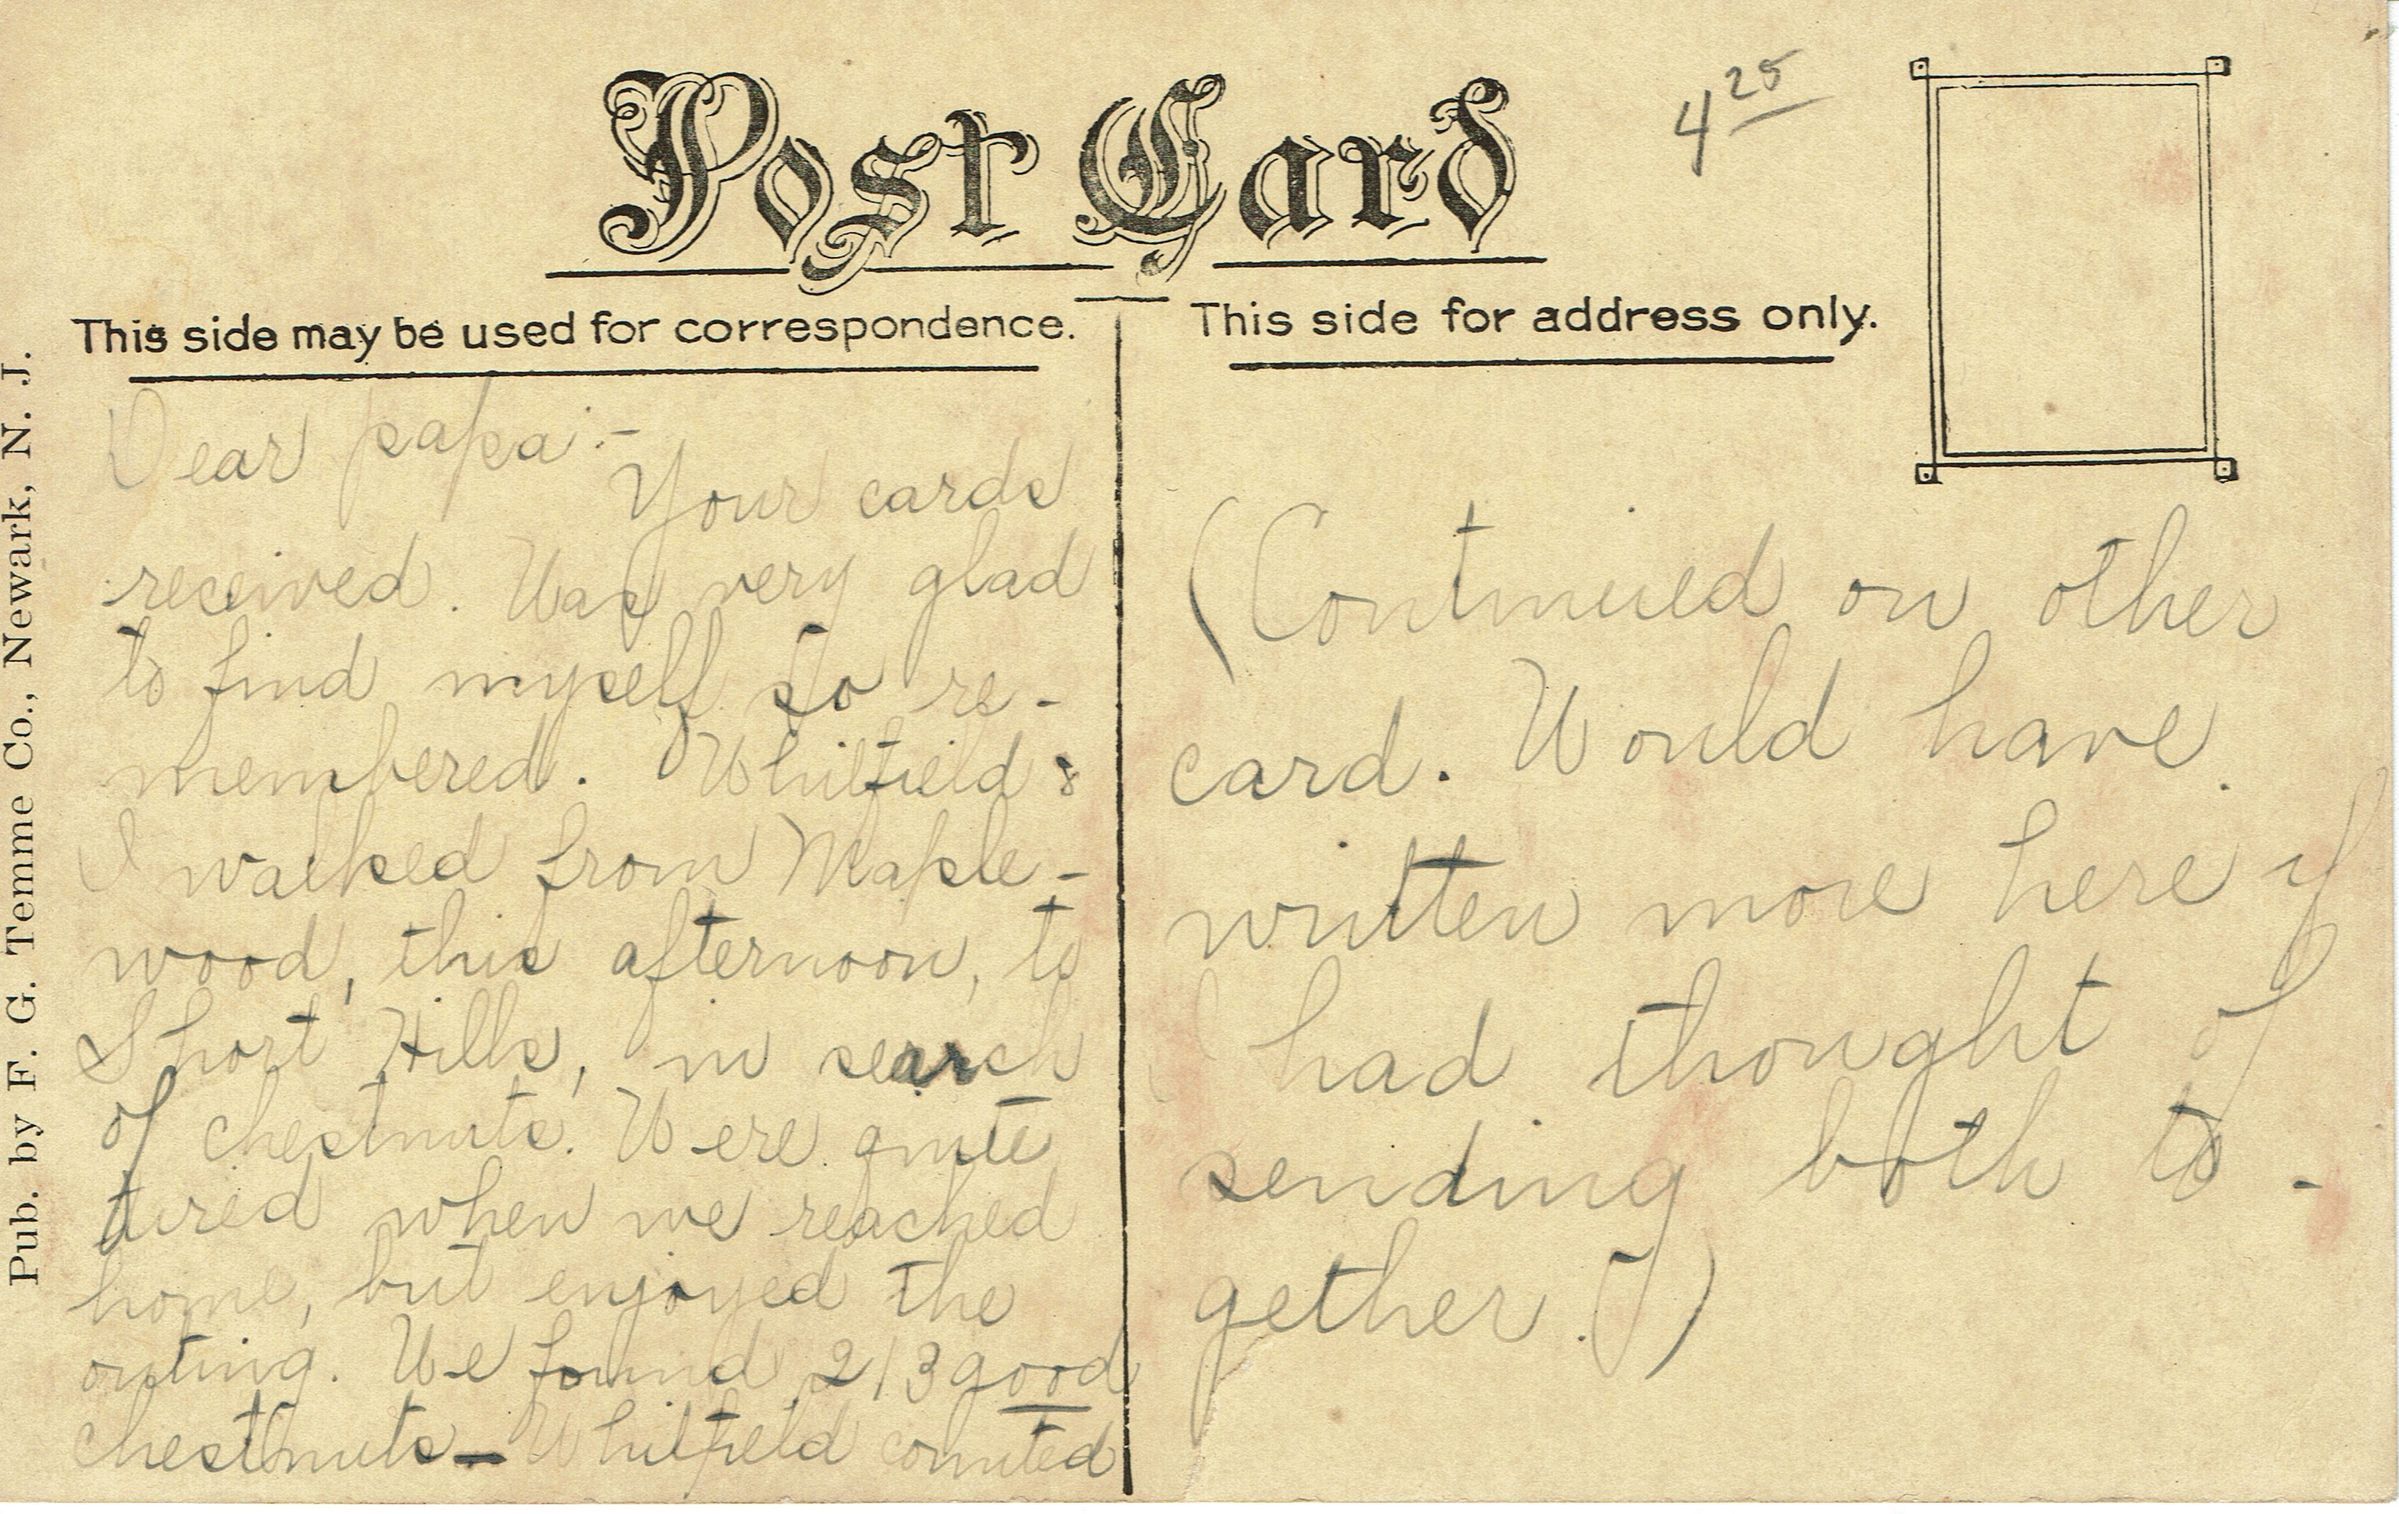 Post Card
4 25
This side may be used for correspondence.
This side for address only.
Pub. by F. G. Temme Co., Newark, N. J.
Dear papa:-
Your cards
received. Was very glad
to find myself so re-
membered. Whitfield &
I walked from Maple-
wood, this afternoon, to
Short Hills, in search
of chestnuts. Were quite
tired when we reached
home, but enjoyed the
outing. We found 213 good
chestnuts – Whitfield counted
(Continued on other
card. Would have
written more here if
I had thought of
sending both to-
gether.)